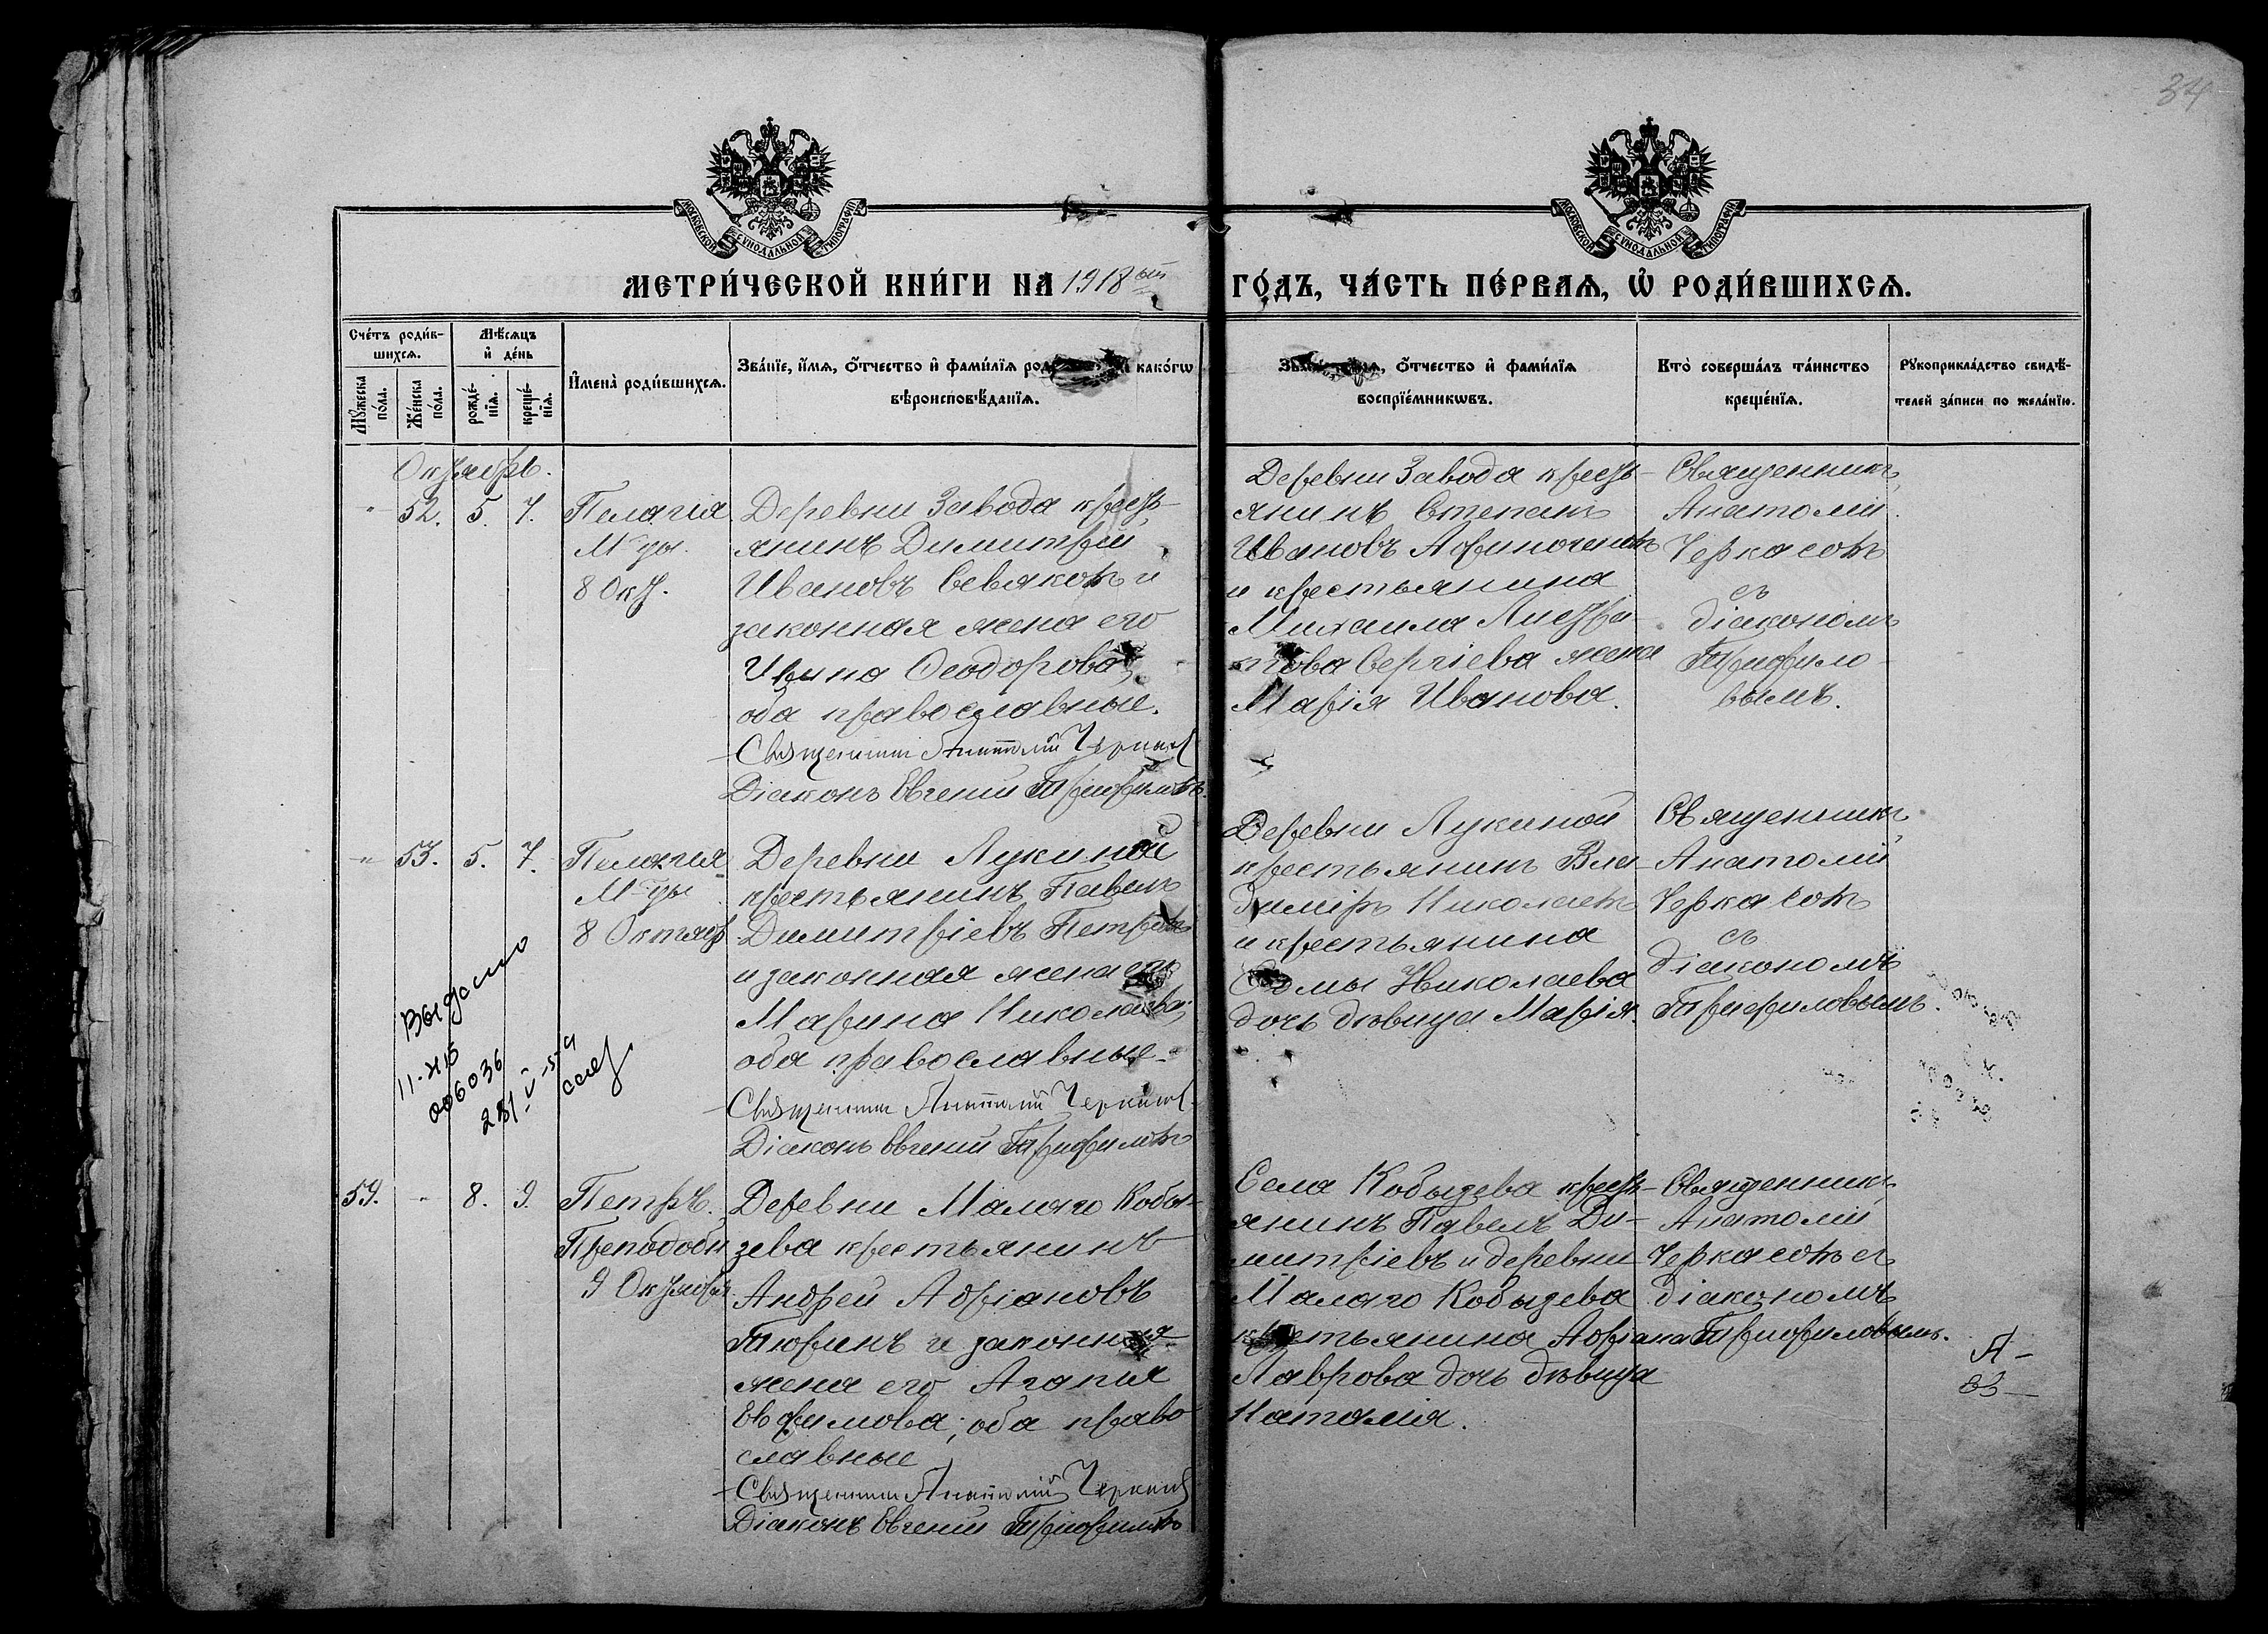 34
МОСКОВСКОЙ СѴНОДАЛЬНОЙ ТИПОГРАФІИ
МОСКОВСКОЙ СѴНОДАЛЬНОЙ ТИПОГРАФІИ
МЕТРИ́ЧЕСКОЙ КНИ́ГИ НА 1918ый
ГО́ДЪ, ЧА́СТЬ ПЕ́РВАѦ, Ѡ҆ РОДИ́ВШИХСѦ.
Сче́тъ роди́в-
шихсѧ.
Мꙋ́жеска по́ла.
Же́нска по́ла.
Мѣ́сѧцъ
и҆ де́нь
рожде́-нїѧ.
креще́-нїѧ.
И҆мена̀ роди́вшихсѧ.
Зва́нїе, и҆́мѧ, ѻ҆́тчество и҆ фами́лїѧ како́гѡ
вѣроисповѣ́данїѧ.
ѻ҆́тчество и҆ фами́лїѧ
воспрїе́мникѡвъ.
Кто̀ соверша́лъ та́инство
креще́нїѧ.
Рꙋкоприкла́дство свидѣ́-
телей за́писи по жела́нїю.
Октябрь.
" 52. 5. 7.
Пелагія
М-цы.
8 Окт.
Деревни Завода кресть-
янинъ Димитрій
Ивановъ Севяковъ и
законная жена его
Ирина Ѳеодорова,
оба православные.
Священникъ Анатолій Черкасов
Діаконъ Евгеній Трифиловъ.
Деревни Завода кресть-
янинъ Степанъ
Ивановъ
и крестьянина
Михаила
Сергіева жена
Марія Иванова.
Священникъ
Анатолій
Черкасовъ
съ
діакономъ
Трифило-
вымъ.
" 53. 5. 7.
Пелагія
М-цы
8 Октяб
Деревни Лукиной
крестьянинъ Павелъ
Димитріевъ Петровъ
и законная жена его
Марина Николаева,
оба православные.
Священникъ Анатолій Черкасов
Діаконъ Евгеній Трифиловъ
Деревни Лукиной
крестьянинъ Вла-
диміръ Николаевъ
и крестьянина
Ѳомы Николаева
дочь дѣвица Марія.
Священникъ
Анатолій
Черкасовъ
съ
діакономъ
Трифиловымъ.
Выдано
006036
59. " 8. 9.
Петръ
Преподобн
9 Октября
Деревни Малаго Кобы-
зева крестьянинъ
Андрей Адріановъ
Тюринъ и законная
жена его Агапия
Евфимова; оба право
славные
Священникъ Анатолій Черкасов
Діаконъ Евгеній Трифиловъ
Села Кобызева кресть-
янинъ Павелъ Ди-
митріевъ и деревни
Малаго Кобызева
крестьянина Адріана
Лаврова дочь дѣвица
Наталія.
Священникъ
Анатолій
Черкасовъ съ
діакономъ
Трифиловымъ.